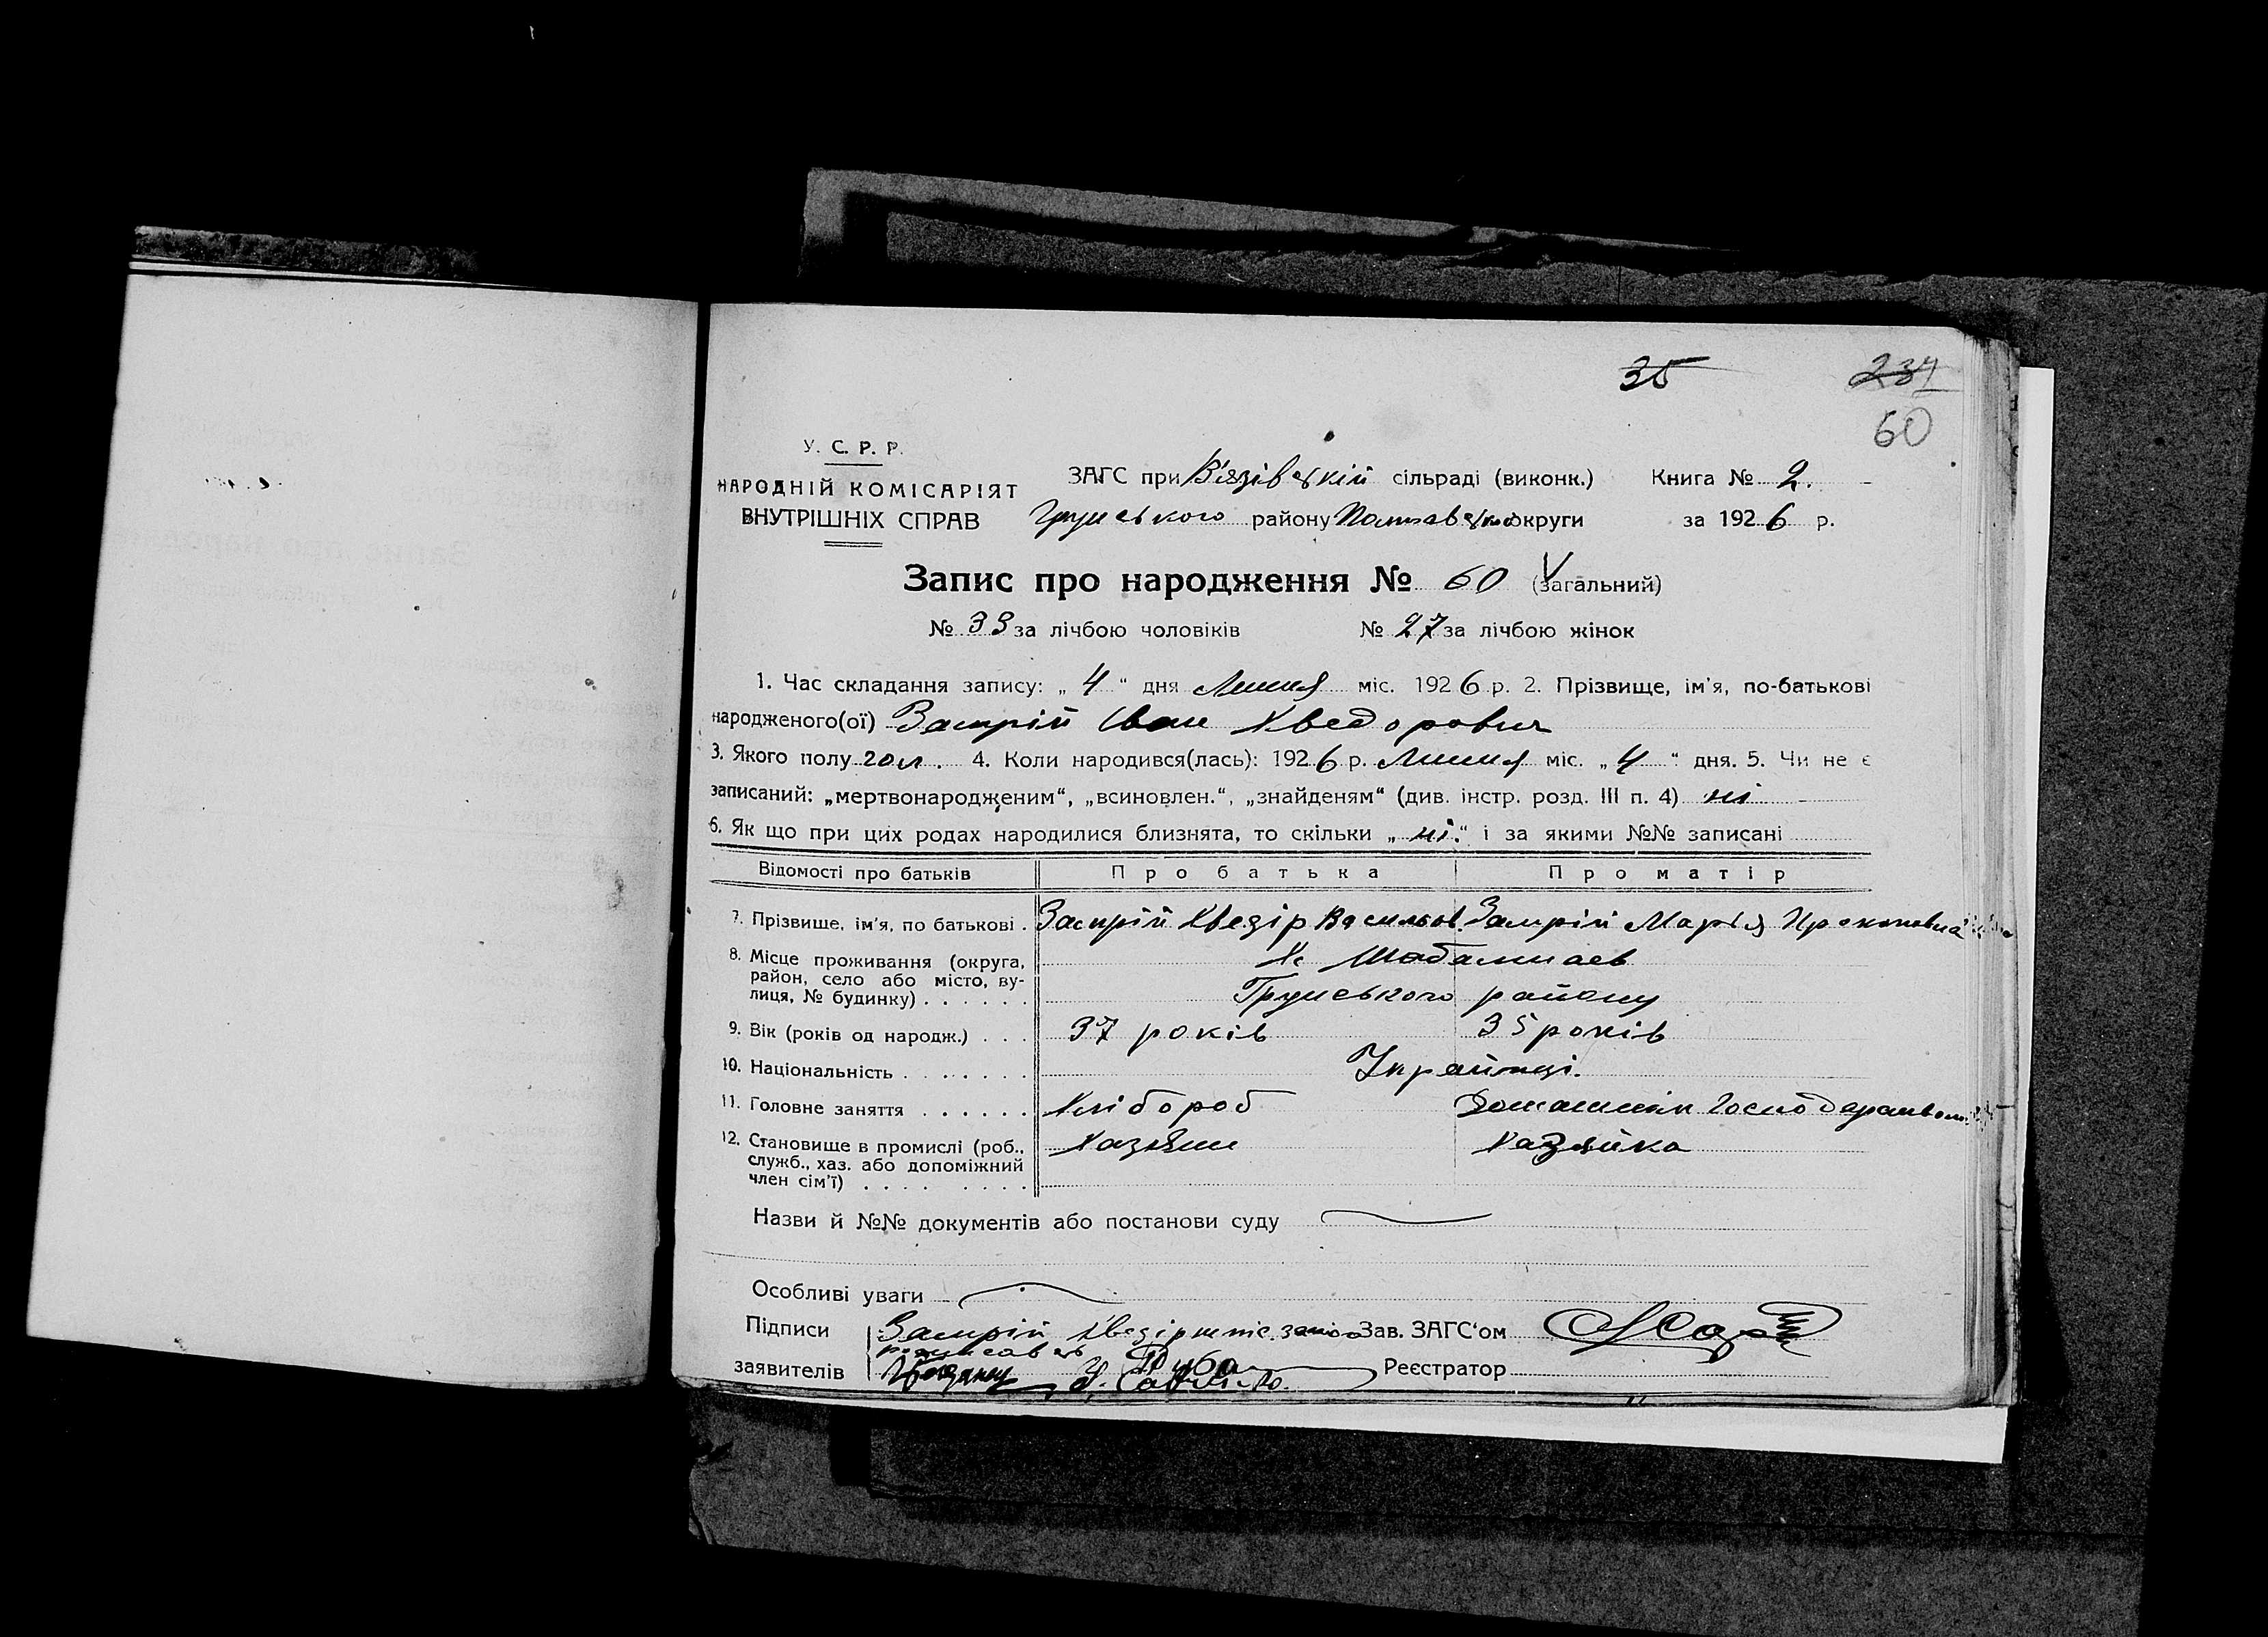 35
234
60
У. С. Р. Р.
НАРОДНІЙ КОМІСАРІЯТ
ВНУТРІШНІХ СПРАВ
ЗАГС при В'язівській сільраді (виконк.) Книга № 2.
Грунського району Полтавської округи за 1926 р.
Запис про народження № 60 (загальний)
№ 33 за лічбою чоловіків № 27 за лічбою жінок
1. Час складання запису: „ 4 “ дня Липня міс. 1926 р. 2. Прізвище, ім'я, по-батькові
народженого(ої) Замрій Іван Хведорович
3. Якого полу чол. 4. Коли народився(лась): 1926 р. Липня міс. „ 4 “ дня. 5. Чи не є
записаний: „мертвонародженим“, „всиновлен.“, „знайденям“ (див. інстр. розд. III п. 4) ні
6. Як що при цих родах народилися близнята, то скільки „ ні “ і за якими №№ записані
Відомості про батьків Про батька Про матір
7. Прізвище, ім'я, по батькові . Замрій Хведір Васильов. Замрій Мар'я Прокоповна
8. Місце проживання (округа, район, село або місто, вулиця, № будинку) . . . . . . Х. Шабалтаєв
Грунського району
9. Вік (років од народж.) . . . 37 років 35 років
10. Національність . . . . . . . Українці.
11. Головне заняття . . . . . . Хлібороб Домашнім Господарством
12. Становище в промислі (роб., служб., хаз. або допоміжний член сім'ї) . . . . . . . . Хазяїн Хазяйка
Назви й №№ документів або постанови суду
Особливі уваги
Підписи Замрій Хведір Зав. ЗАГС'ом
заявителів Реєстратор